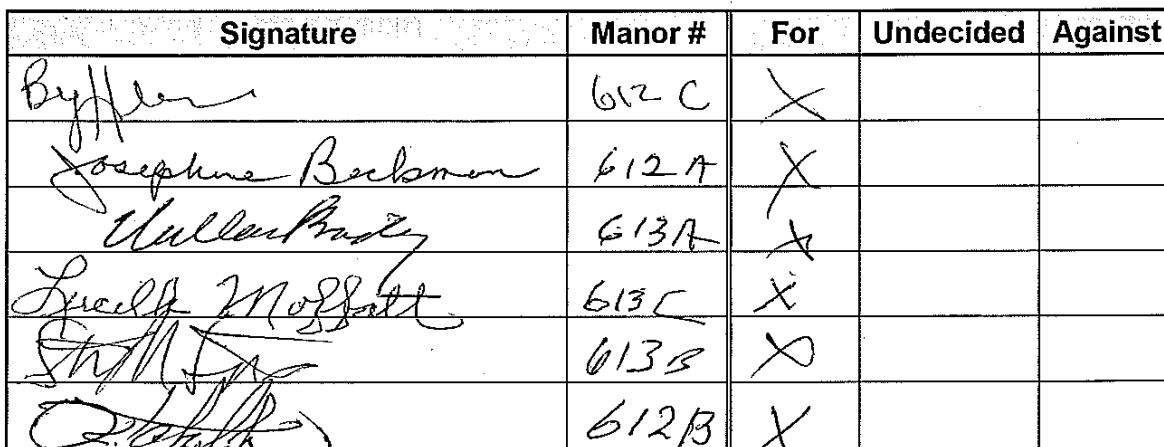 Signature Manor # For Undecided Against
612 C X
Josephine Beckman 612A X
613A X
Lucille Moffatt 613C X
613B X
612B X